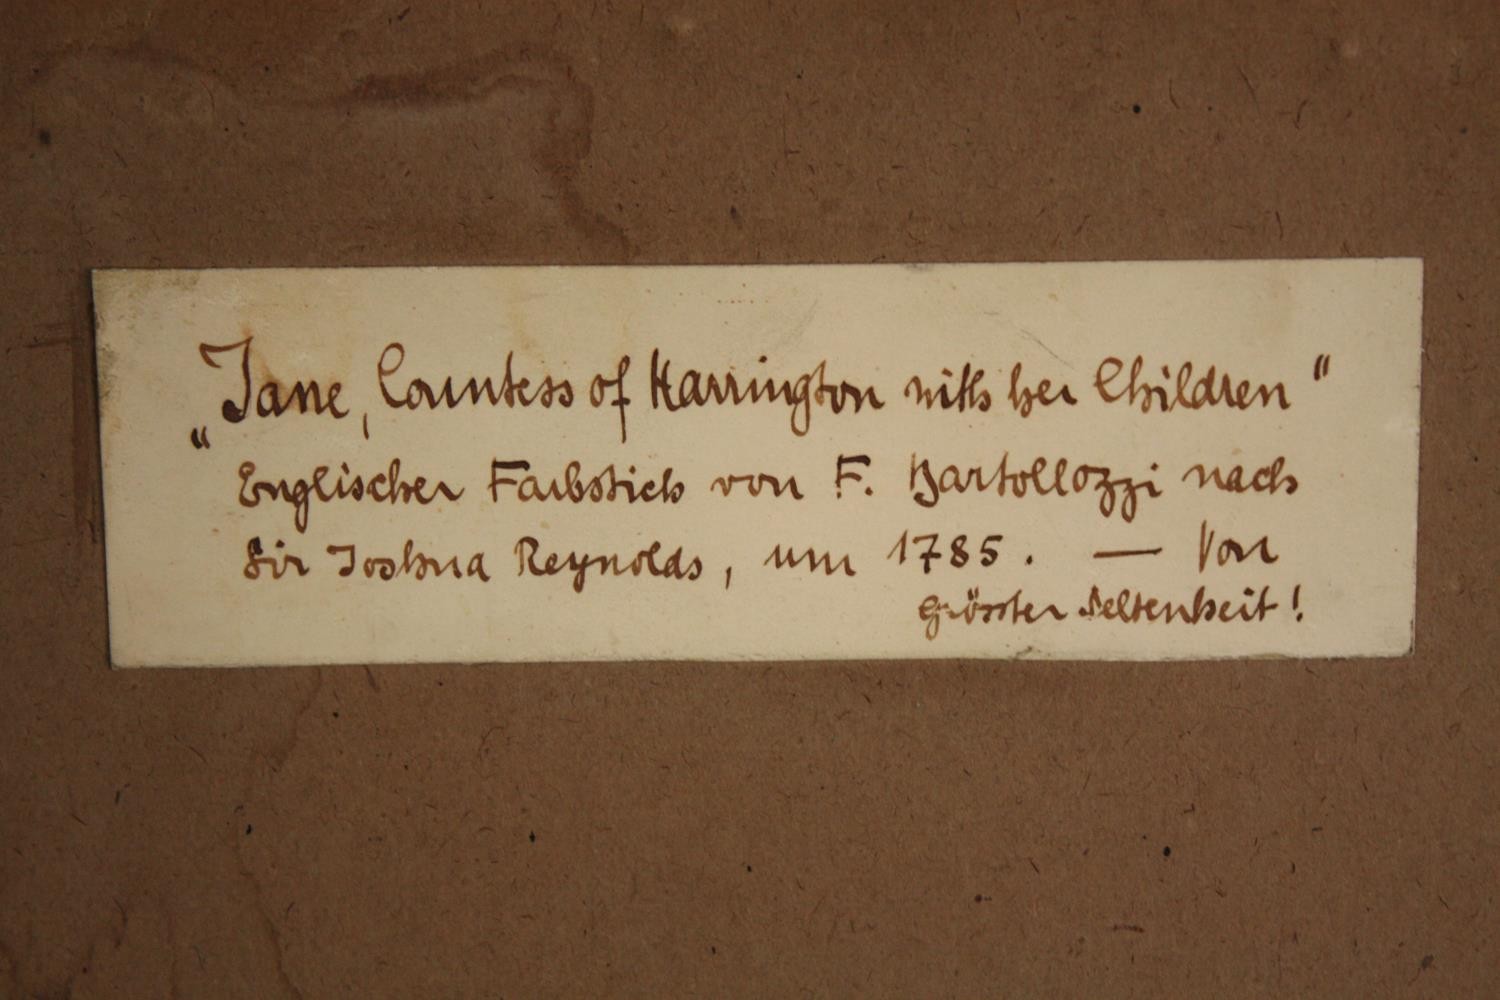 „Jane, Countess of Harrington with her Children“
Englischer Farbstich von F. Bartollozzi nach
Sir Joshua Reynolds, um 1785. — Von
grösster Seltenheit!